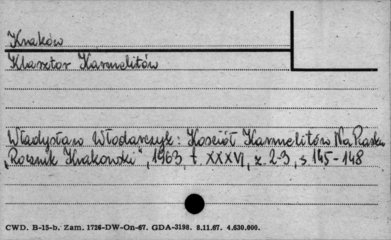 Kraków
Klasztor Karmelitów
Władysław Włodarczyk: Kościół Karmelitów Na Piasku
„Rocznik Krakowski", 1963, t. XXXVI, z. 2-3, s 145-148
CWD. B-15-b. Zam. 1726-DW-On-67. GDA-3198. 8.11.67. 4.630.000.